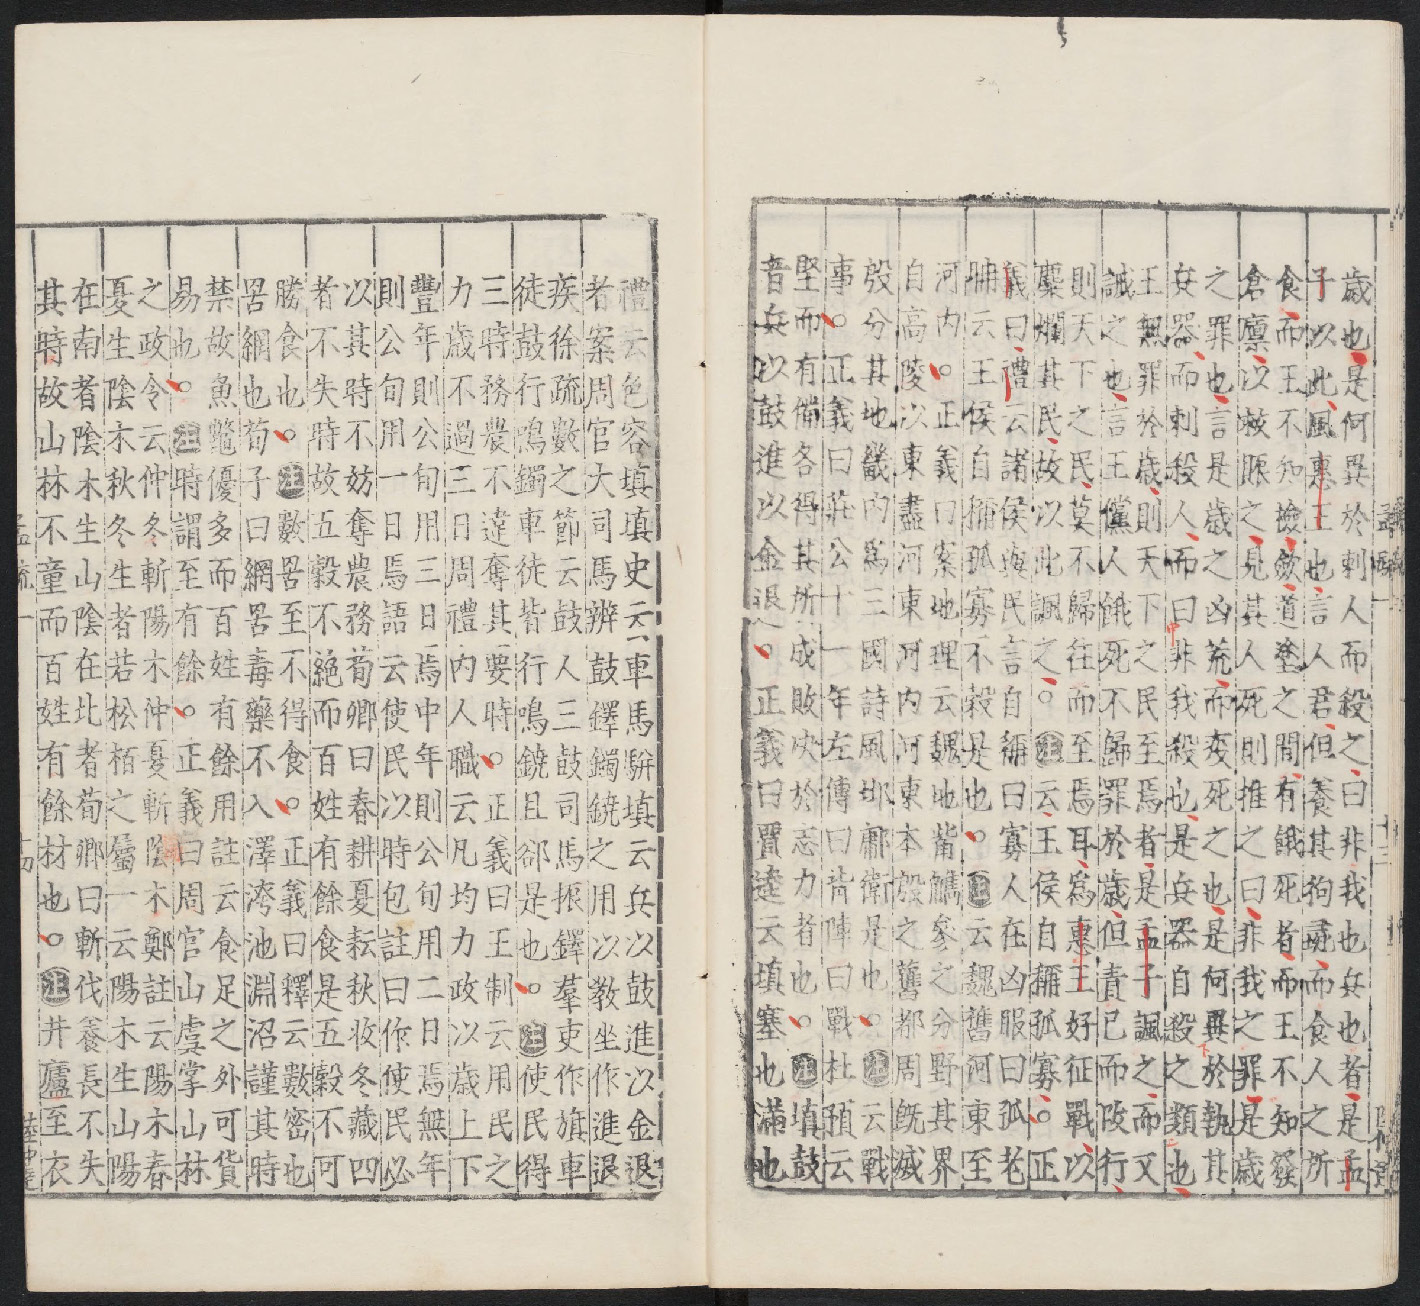 歲也是何異於刺人而殺之曰非我也兵也者是孟
子以此風惠王也言人君但養其狗彘而食人之所
食而王不知撿斂道塗之間有餓死者而王不知發
倉廩以救賑之見其人死則推之曰非我之罪是歲
之罪也言是歲之凶荒而変死之也是何異於執其
兵器而刺殺人而曰非我殺也是兵器自殺之類也
王無罪於歲則天下之民至焉者是孟子諷之而又
誡之也言王儻人餓死不歸罪於歲但責已而改行
則天下之民莫不歸往而至焉耳為惠王好征戰以
麋爛其民故以此諷之○注云王侯自稱孤寡○正
義曰禮云諸侯與民言自稱曰寡人在凶服曰孤老
聃云王侯自稱孤寡不穀是也○注云魏舊河東至
河内○正義曰案地理云魏地觜觿參之分野其界
自高陵以東盡河東河内河東本殷之舊都周旣滅
殷分其地畿内為三國詩風邶鄘衛是也○注云戰
事○正義曰莊公十一年左傳曰皆陣曰戰杜預云
堅而有備各得其所成敗决於志力者也○注填鼓
音兵以鼓進以金退○正義曰賈逵云填塞也滿也
禮云色容填填史云車馬駢填云兵以鼓進以金退
者案周官大司馬辨鼓鐸鐲鐃之用以教坐作進退
疾徐疏數之節云鼓人三鼓司馬振鐸羣吏作旗車
徒鼓行鳴鐲車徒皆行鳴鐃且郤是也○注使民得
三時務農不違奪其要時○正義曰王制云用民之
力歲不過三日周禮内人職云凡均力政以歲上下
豐年則公旬用三日焉中年則公旬用二日焉無年
則公旬用一日焉語云使民以時包註曰作使民必
以其時不妨奪農務荀卿曰春耕夏耘秋收冬藏四
者不失時故五穀不絕而百姓有餘食是五穀不可
勝食也○注數罟至不得食○正義曰釋云數密也
罟網也荀子曰網罟毒藥不入澤洿池淵沼謹其時
禁故魚鼈優多而百姓有餘用註云食足之外可貨
易也○注時謂至有餘○正義曰周官山虞掌山林
之政令云仲冬斬陽木仲夏斬陰木鄭註云陽木春
夏生陰木秋冬生者若松栢之屬一云陽木生山陽
在南者陰木生山陰在北者荀卿曰斬伐養長不失
其時故山林不童而百姓有餘材也○注井廬至衣